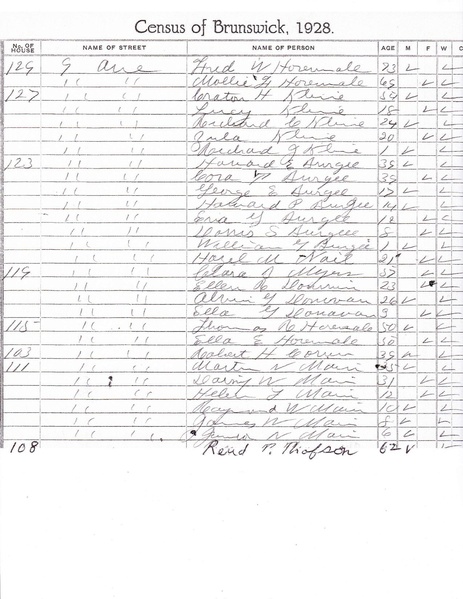 Census of Brunswick, 1928.
No. OF HOUSE NAME OF STREET NAME OF PERSON AGE M F W C
129 G Ave Fred W Horemale 23 ✓ ✓
" " Mollie Horemale ✓ ✓
127 " " H Kline ✓ ✓
" " Lucy Kline 18 ✓ ✓
" " Richard C Kline 24 ✓ ✓
" " Kline 20 ✓ ✓
" " Richard Kline 1 ✓ ✓
123 " " Howard E Burgee ✓ ✓
" " Cora Burgee ✓ ✓
" " George E Burgee 17 ✓ ✓
" " Howard P Burgee 14 ✓ ✓
" " Eva G Burgee 12 ✓ ✓
" " Doris S Burgee 8 ✓ ✓
" " William G Burgee 1 ✓ ✓
" " Hazel M Nail 21 ✓ ✓
119 " " Clara Myers 57 ✓ ✓
" " Ellen 23 ✓ ✓
" " Alvin G Donovan 26 ✓ ✓
" " Ella G Donavan 9 ✓ ✓
115 " " Thomas Horemale 50 ✓ ✓
" " Ella E Horemale 50 ✓ ✓
103 " " Robert H ✓ ✓
111 " " Martin N Main ✓ ✓
" " Daisy W Main 31 ✓ ✓
" " Helen Main 12 ✓ ✓
" " Raymond W Main 10 ✓ ✓
" " James W Main 8 ✓ ✓
" " N Main 6 ✓ ✓
108 Rend P. Thofson 62 ✓